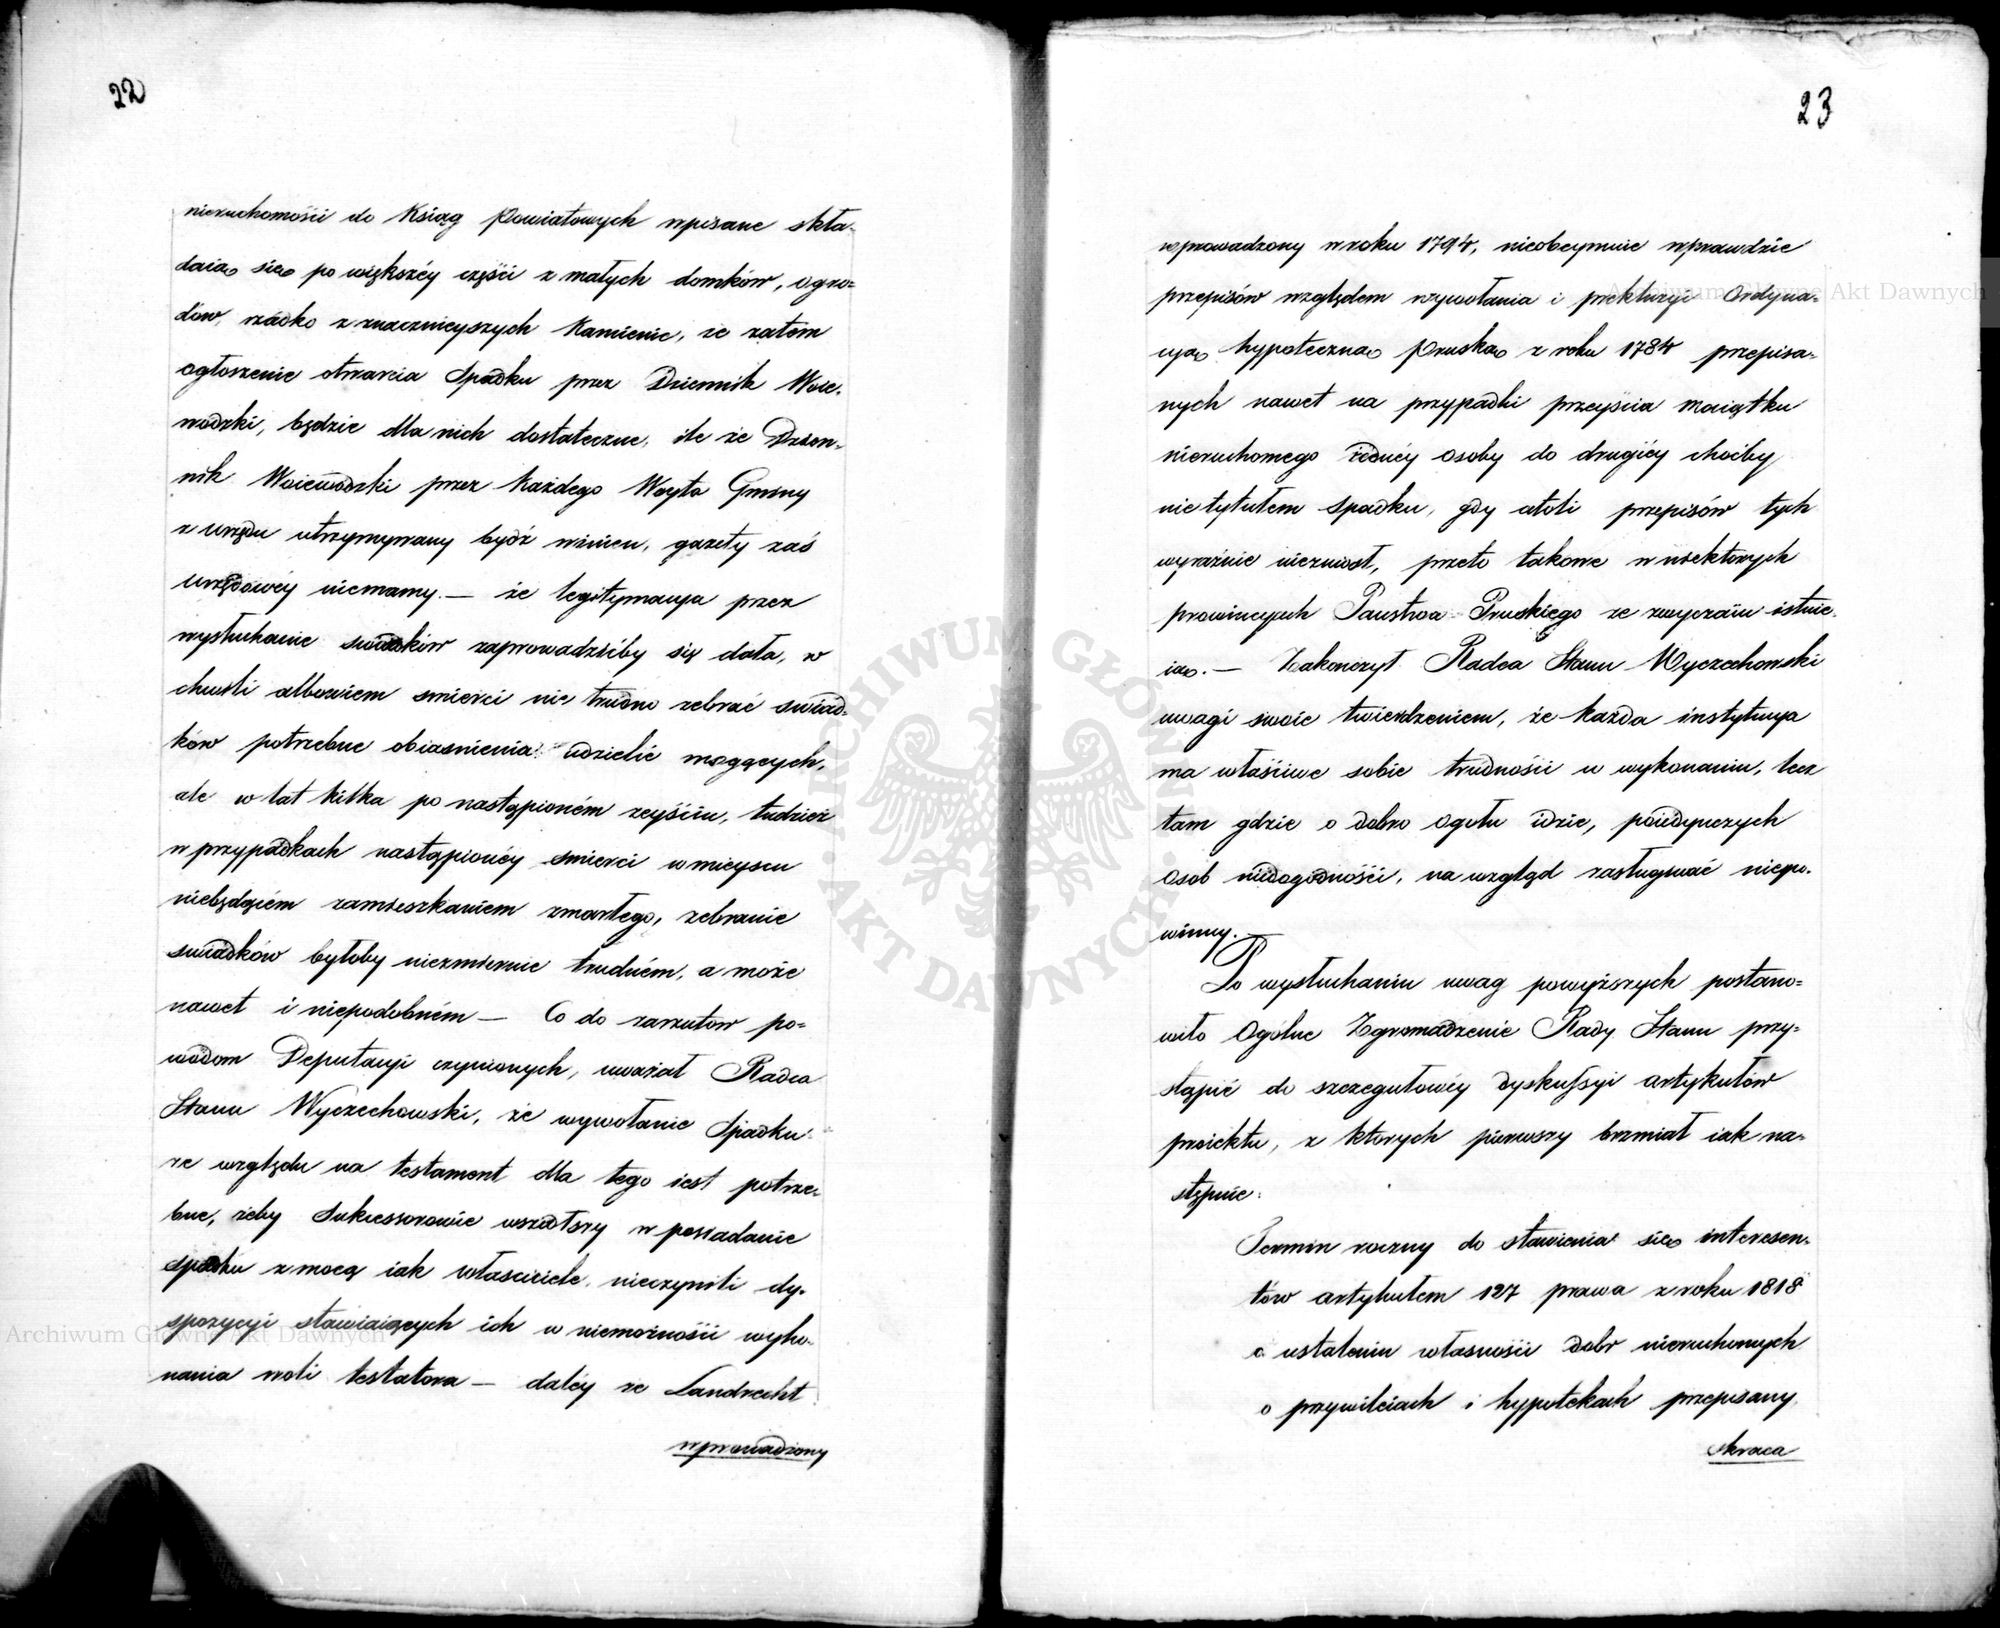 22
nieruchomości do Ksiąg Powiatowych wpisane skła-
daią się po większéy części z małych domków, ogro-
dów, rzadko z znacznieyszych Kamienic, że zatém
ogłoszenie otwarcia Spadku przez Dziennik Woie-
wodzki, będzie dla nich dostateczne, ile że Dzien-
nik Woiewodzki przez każdego Woyta Gminy
z urzędu utrzymywany bydź winien, gazety zaś
urzędowéy niemamy. — że legitymacya przez
wysłuchanie swiadków zaprowadzićby się dała, w
chwili albowiem smierci nie trudno zebrać swiad-
ków potrzebne obiasnienia udzielić mogących,
ale w lat kilka po nastąpioném zeyściu, tudzież
w przypadkach nastąpionéy smierci w mieyscu
niebędącém zamieszkaniem zmarłego, zebranie
swiadków byłoby niezmiernie trudném, a może
nawet i niepodobném — Co do zarzutow po-
wodom Deputacyi czynionych, uważał Radca
Stanu Wyczechowski, że wywołanie Spadku
ze względu na testament dla tego iest potrze-
bne, żeby Sukcessorowie wszedłszy w posiadanie
spadku z mocą iak własciciele, nieczynili dy-
spozycyi stawiaiących ich w niemożności wyko-
nania woli testatora — daléy że Landrecht
wprowadzony
23
wprowadzony w roku 1794, nieobeymuie wprawdzie
przepisów względem wywołania i prekluzyi Ordyna-
cyą hypoteczną Pruską z roku 1784 przepisa-
nych nawet na przypadki przeyścia maiątku
nieruchomego z iednéy osoby do drugiéy choćby
nie tytułem spadku, gdy atoli przepisów tych
wyraźnie niezniosł, przeto takowe w niektorych
prowincyach Państwa Pruskiego ze zwyczaiu istnie-
ią. — Zakonczył Radca Stanu Wyczechowski
uwagi swoie twierdzeniem, że każda instytucya
ma właściwe sobie trudności w wykonaniu, lecz
tam gdzie o dobro ogółu idzie, poiedynczych
osob niedogodności, na wzgląd zasługiwać niepo-
winny. —
Po wysłuchaniu uwag powyższych postano-
wiło Ogólne Zgromadzenie Rady Stanu przy-
stąpić do szczegułowéy dyskussyi artykułów
proiektu, z ktorych pierwszy brzmiał iak na-
stępuie:
Termin roczny do stawienia się interesen-
tów artykułem 127 prawa z roku 1818
o ustaleniu własności dobr nieruchomych
o przywileiach i hypotekach przepisany,
skraca
Archiwum Główne Akt Dawnych
Archiwum Główne Akt Dawnych
ARCHIWUM GŁÓWNE AKT DAWNYCH